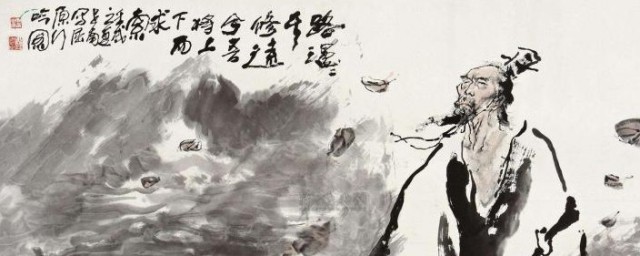 路漫〻
其
修遠
兮吾
将上
下而
求
索
写屈
原行
吟圖